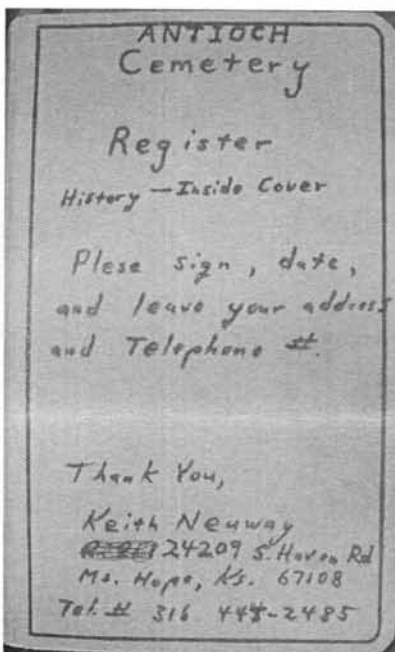 ANTIOCH
Cemetery
Register
History — Inside Cover
Plese sign, date,
and leave your address
and Telephone #.
Thank You,
Keith Neuway
24209 S. Haven Rd
Mt. Hope, Ks. 67108
Tel. # 316 444-2485